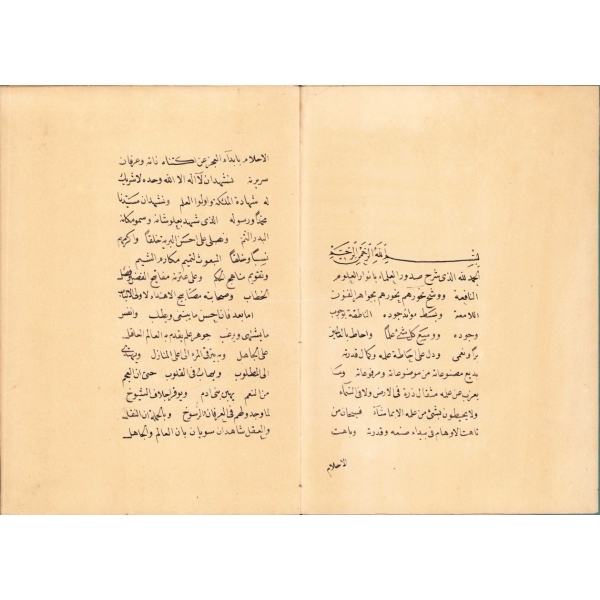 بسم الله الرحمن الرحيم
الحمد لله الذى شرح صدور العلماء بانوار العلوم
النافعة ووشح نحورهم بجواهر الفنون
اللامعة وبسط موايد جوده الناطقة بوجوب
وجوده ووسع كل شئ علما واحاط بالبرايا
ودل على احاطة علمه وكمال قدرته
بديع مصنوعاته من موضوعاته ومرفوعاته وما
يعزب عن علمه مثقال ذرة فى الارض ولا فى السماء
ولا يحيطون بشئ من علمه الا بما شاء فسبحان من
تاهت الاوهام فى بيداء صنعه وقدرته وباهت
الاحلام
الاحلام بابداء العجز عن اكتناه ذاته وعرفان
سريرته نشهد ان لا اله الا الله وحده لا شريك
له شهادة الملئكة واولوا العلم ونشهد ان سيدنا
محمدا ورسوله الذى شهد بعلو شانه وسمو مكانه
البدر التم ونصلى على احسن البرية خلقا واكرمهم
نسبا وخلقا المبعوث لتتميم مكارم الشيم
وتقويم مناهج وعلى عترته مفاتيح الفضل وفصل
الخطاب وصحابته مصابيح الاهتداء لاولى الالباب
اما بعد فان احسن ما يبتغى ويطلب وانفس
ما يشتهى ويرغب جوهر علم يقدم به العالم العاقل
على الجاهل ويرتقى المرء الى على المنازل ويهتدى
الى المطلوب ويحاب فى القلوب حتى ان
من النعم بادم ويوقر اجلاف الشيوخ
لما وجد ولهم فى العرفان الرسوخ وبالجملة ان النقل
والعقل شاهدان سويان بان العالم والجاهل